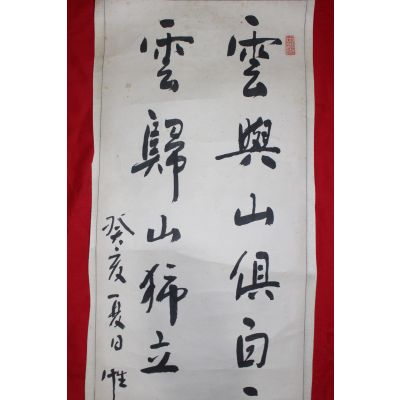 雲與山俱白
雲歸山獨立
癸亥夏日